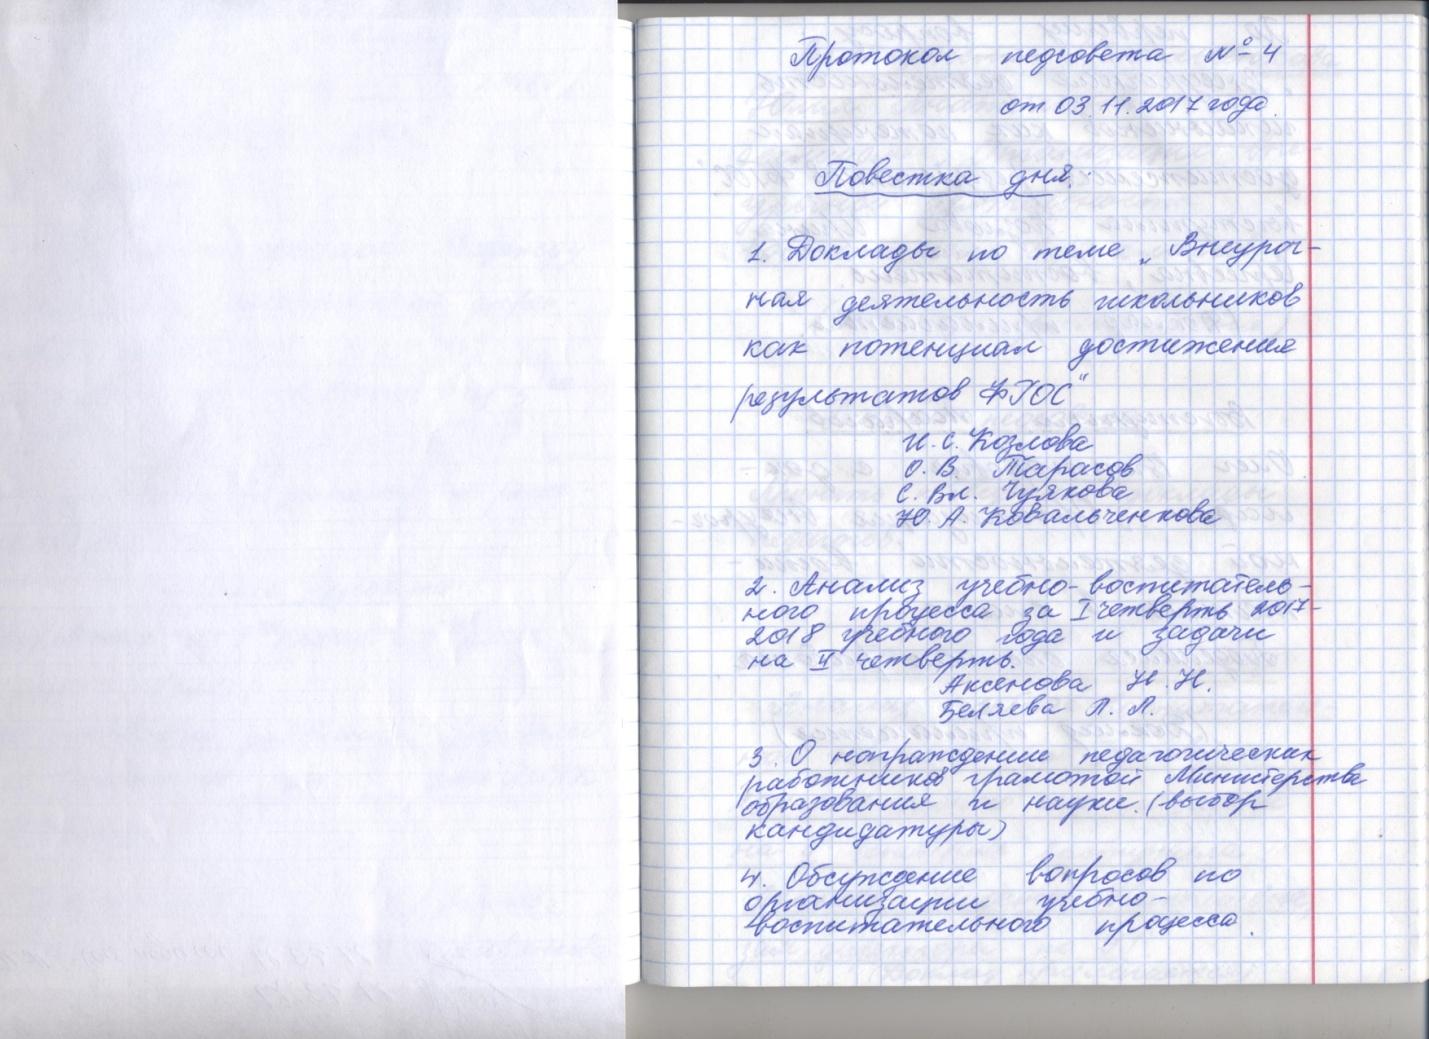 Протокол педсовета № 4
от 03.11.2017 года.
Повестка дня:
1. Доклады по теме „Внеуроч-
ная деятельность школьников
как потенциал достижения
результатов ФГОС"
И. С. Козлова
О. В. Тарасов
С. Вл. Чуякова
Ю. А. Ковальченкова
2. Анализ учебно-воспитатель-
ного процесса за I четверть 2017-
2018 учебного года и задачи
на II четверть.
Аксенова Н. Н.
Беляева Л. Л.
3. О награждении педагогических
работников грамотой Министерства
образования и науки. (выбор
кандидатуры)
4. Обсуждение вопросов по
организации учебно-
воспитательного процесса.